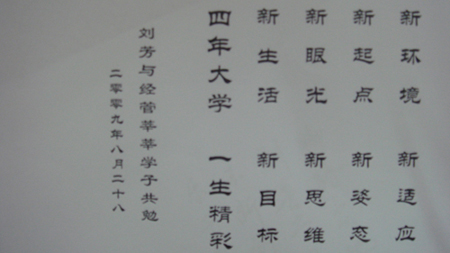 新环境 新适应
新起点 新姿态
新眼光 新思维
新生活 新目标
四年大学 一生精彩
刘芳与经管莘莘学子共勉
二零零九年八月二十八